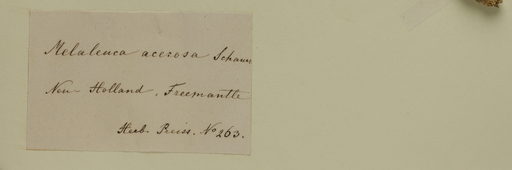 Melaleuca acerosa Schauer
New Holland, Freemantle
Herb. Preiss. No 263.